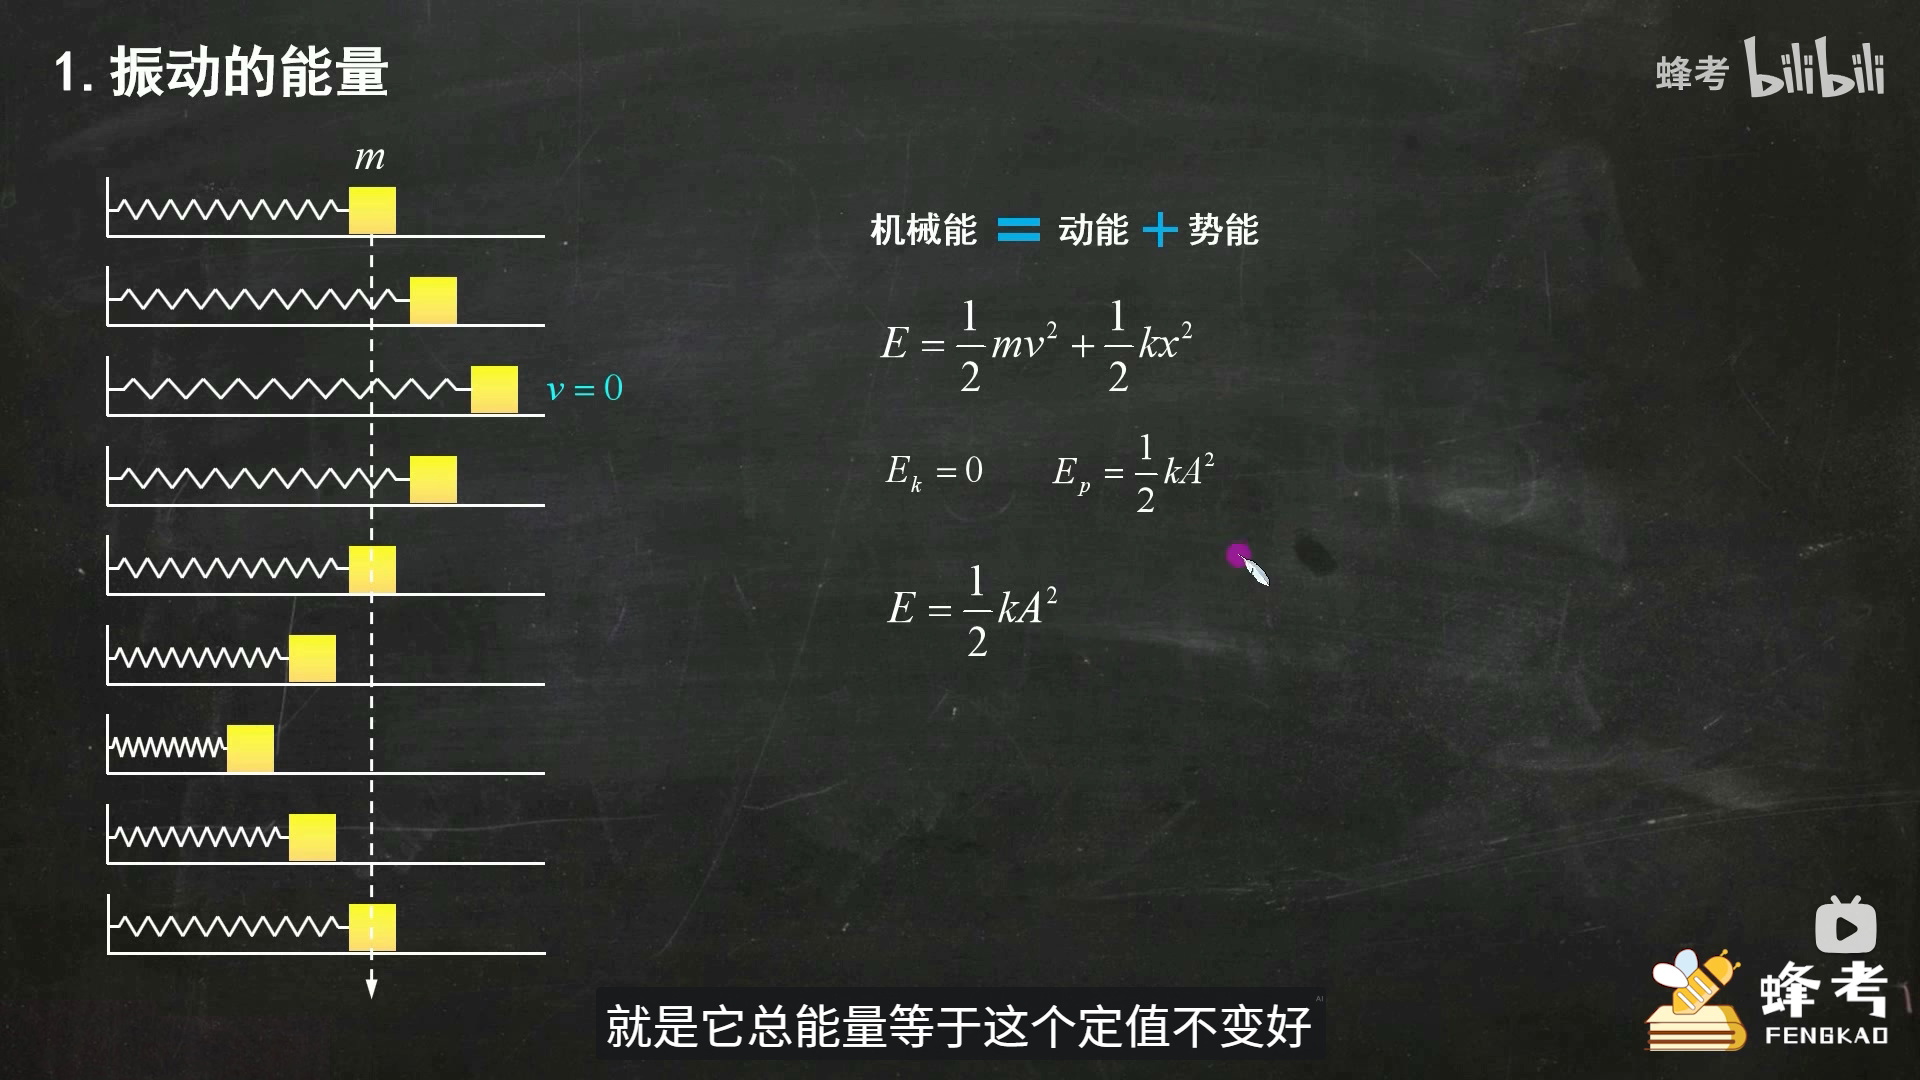 1. 振动的能量
蜂考 bilibili
m
机械能 = 动能 + 势能
E = \frac{1}{2}mv^2 + \frac{1}{2}kx^2
v = 0
E_k = 0  E_p = \frac{1}{2}kA^2
E = \frac{1}{2}kA^2
就是它总能量等于这个定值不变好
AI
蜂考
FENGKAO